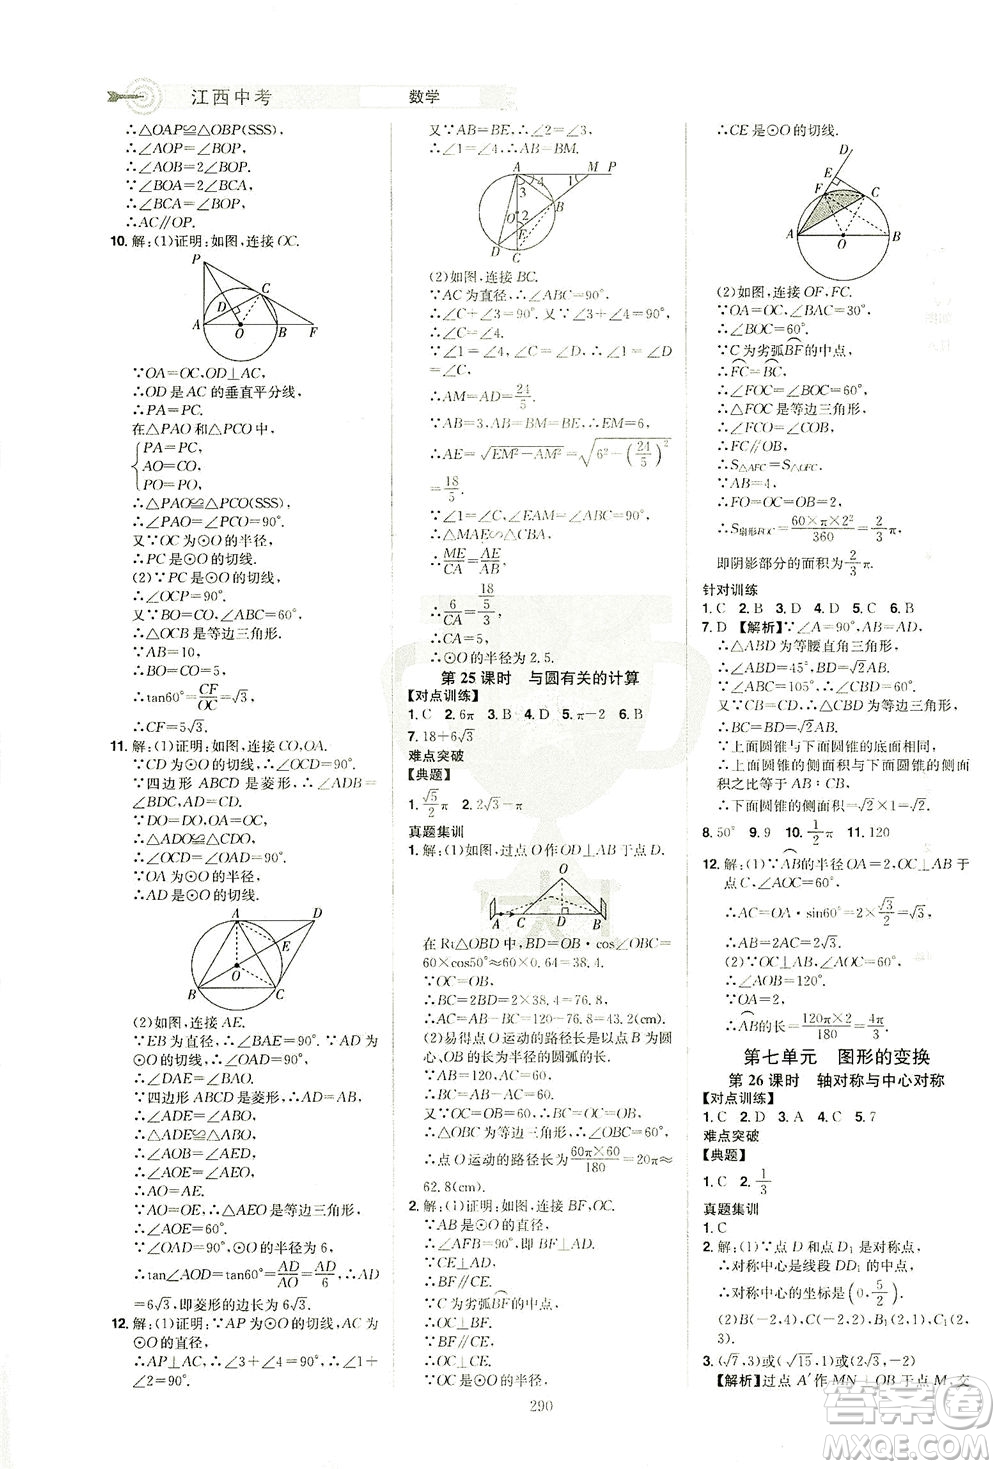 江西中考 数学
∴△OAP≌△OBP(SSS),
∴∠AOP=∠BOP,
∴∠AOB=2∠BOP.
∵∠BOA=2∠BCA,
∴∠BCA=∠BOP,
∴AC∥OP.
10. 解:(1)证明:如图,连接OC.
P
D
C
A
O
B
F
∵OA=OC,OD⊥AC,
∴OD是AC的垂直平分线,
∴PA=PC.
在△PAO和△PCO中,
PA=PC,
AO=CO,
PO=PO,
∴△PAO≌△PCO(SSS),
∴∠PAO=∠PCO=90°.
又∵OC为⊙O的半径,
∴PC是⊙O的切线.
(2)∵PC是⊙O的切线,
∴∠OCP=90°.
又∵BO=CO,∠ABC=60°,
∴△OCB是等边三角形.
∵AB=10,
∴tan60°=CF/OC=√3,
∴CF=5√3.
11. 解:(1)证明:如图,连接CO,OA.
∵CD为⊙O的切线,∴∠OCD=90°.
∵四边形ABCD是菱形,∴∠DAB=∠DBC,AD=CD.
∵DO=DO,OA=OC,
∴△ADO≌△CDO,
∴∠OCD=∠OAD=90°.
∵OA为⊙O的半径,
∴AD是⊙O的切线.
A
D
E
O
B
C
(2)如图,连接AE.
∵EB为直径,∴∠BAE=90°.
∵四边形ABCD是菱形,
∴AB=AD,∴∠ABE=∠ADE.
∵∠DAE=90°-∠OAE,∠BAO=90°-∠OAE,
∴∠DAE=∠BAO=∠ABE,
∴∠ADE=∠DAE,
∴△ADE≌△BAO,
∴∠BOA=∠AED,
∴∠AOE=∠AEO,
∴AO=AE.
∵AO=OE,∴△AEO是等边三角形,
∴∠AOE=60°.
∵∠OAD=90°,⊙O的半径为6,
∴tan∠AOD=tan60°=AD/AO=AD/6=√3,∴AD=6√3,即菱形的边长为6√3.
12. 解:(1)证明:∵AP为⊙O的切线,AC为⊙O的直径,
∴AP⊥AC,∴∠3+∠4=90°,∴∠1+∠2=90°.
又∵AB=BE,∴∠2=∠3,
∴∠1=∠4,∴AB=BM.
A
M
P
4
1
3
B
O
2
E
D
C
(2)如图,连接BC.
∵AC为直径,∴∠ABC=90°,
∴∠C+∠3=90°.又∵∠3+∠4=90°,∴∠C=∠4.
又∵∠1=∠4,∴∠1=∠C=∠D,
∴AM=AD=24/5.
∵AB=3,AB=BM=BE,∴EM=6,
∴AE=√EM²-AM²=√6²-(24/5)²=18/5.
∵∠1=∠C,∠EAM=∠ABC=90°,
∴△MAE∽△CBA,
∴ME/CA=AE/AB,
∴6/CA=18/5/3,
∴CA=5,
∴⊙O的半径为2.5.
第25课时 与圆有关的计算
【对点训练】
1. C 2. 6π 3. B 4. D 5. π-2 6. B
7. 18+6√3
难点突破
【典题】
1. √5/2π 2. 2√3-π
真题集训
1. 解:(1)如图,过点O作OD⊥AB于点D.
O
A
C
D
B
在Rt△OBD中,BD=OB·cos∠OBA=60×cos50°≈60×0.64=38.4.
∵OC=OB,
∴BC=2BD=2×38.4=76.8,
∴AC=AB-BC=120-76.8=43.2(cm).
(2)易得点O运动的路径长是以点B为圆心,OB的长为半径的圆弧的长.
∵BC=AB-AC=60,
又∵OC=OB=60,
∴△OBC为等边三角形,∠OBC=60°,
∴点O运动的路径长为60π×60/180=20π≈62.8(cm).
2. 解:(1)证明:如图,连接BF,OC.
∵AB是⊙O的直径,
∴∠AFB=90°,即BF⊥AD.
∵CE⊥AD,
∴BF∥CE.
∵C为劣弧BF的中点,
∴OC⊥BF.
∵BF∥CE,
∴OC⊥CE.
∵OC是⊙O的半径,
∴CE是⊙O的切线.
D
E
F
C
A
O
B
(2)如图,连接OF,FC.
∵OA=OC,∠BAC=30°,
∴∠BOC=60°.
∵C为劣弧BF的中点,
∴FC=BC,
∴∠FOC=∠BOC=60°,
∴△FOC是等边三角形,
∴∠FCO=∠COB,
∴FC∥OB,
∴S△AFC=S△OFC.
∵AB=4,
∴FO=OC=OB=2,
∴S扇形FOC=60×π×2²/360=2/3π,
即阴影部分的面积为2/3π.
针对训练
1. C 2. B 3. B 4. D 5. C 6. B
7. D 【解析】∵∠A=90°,AB=AD,
∴△ABD为等腰直角三角形,
∴∠ABD=45°,BD=√2AB.
∵∠ABC=105°,∴∠CBD=60°.
又∵CB=CD,∴△CBD为等边三角形,∴BC=BD=√2AB.
∵上面圆锥与下面圆锥的底面相同,
∴上面圆锥的侧面积与下面圆锥的侧面积之比等于AB∶CB,
∴下面圆锥的侧面积为√2.
8. 50° 9. 9 10. 1/2π 11. 120
12. 解:(1)∵AB的半径OA=2,OC⊥AB于点C,∠AOC=60°,
∴AC=OA·sin60°=2×√3/2=√3,
∴AB=2AC=2√3.
(2)∵OC⊥AB,∠AOC=60°,
∴∠AOB=120°.
∵OA=2,
∴AB的长=120π×2/180=4π/3.
第七单元 图形的变换
第26课时 轴对称与中心对称
【对点训练】
1. C 2. D 3. A 4. C 5. 7
难点突破
【典题】
1. C 2. 1/3
真题集训
1. C
2. 解:(1)∵点D和点D₁是对称点,
∴对称中心是线段DD₁的中点,
∴对称中心的坐标是(0,5/2).
(2)B(-2,4),C(-2,2),B₁(2,1),C₁(2,3).
3. (√7,3)或(√15,1)或(2√3,-2)
【解析】过点A′作MN⊥OB于点M,交
290
答案圈
MXQE.COM